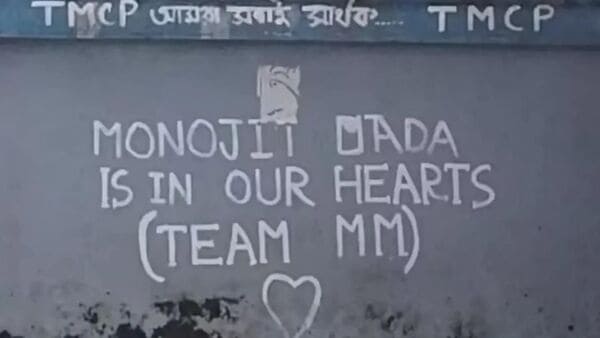 TMCP আমরা সবাই সার্থক..... TMCP
MONOJIT DADA
IS IN OUR HEARTS
(TEAM MM)